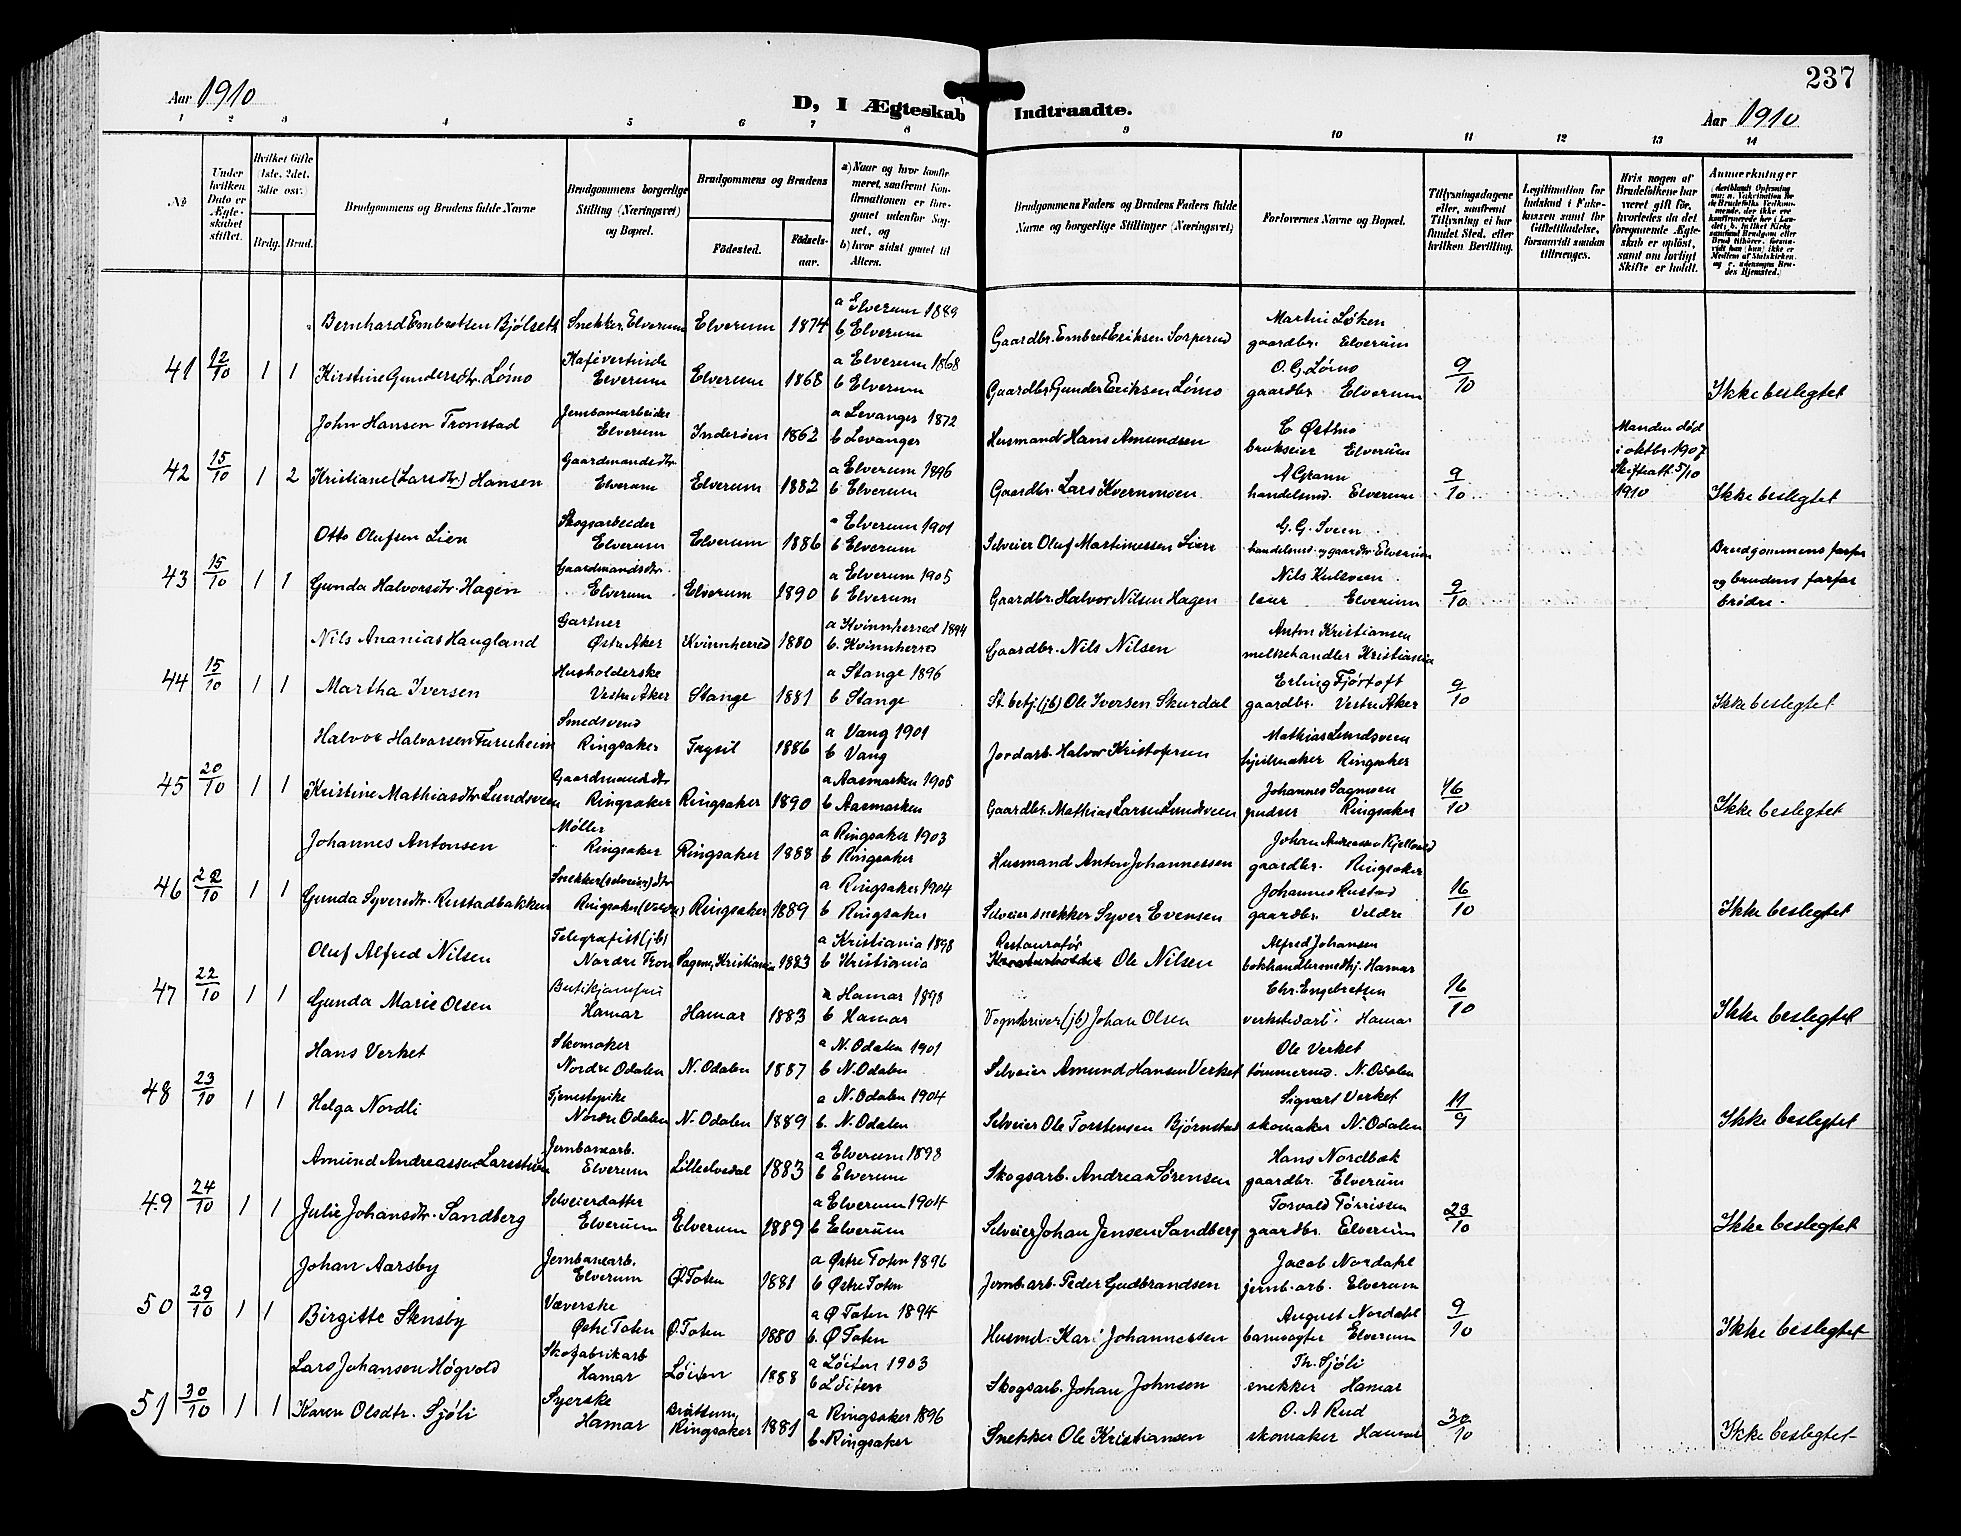 237
Aar 1910
D, I Ægteskab Indtraadte.
Aar 1910
1 2 3 4 5 6 7 8 9 10 11 12 13 14
No
Under hvilken Dato er Ægteskabet stiftet.
Hvilket Gifte 1ste, 2det, 3die osv.
Brdg. Brud.
Brudgommens og Brudens fulde Navne
Brudgommens borgerlige Stilling (Næringsvei) og Bopæl.
Brudgommens og Brudens
Födested.
Födselsaar.
a) Naar og hvor konfirmeret, saafremt Konfirmationen er foregaaet udenfor Sognet, og
b) hvor sidst gaaet til Altern.
Brudgommens Faders og Brudens Faders fulde Navne og borgerlige Stillinger (Næringsvei)
Forlovernes Navne og Bopæl.
Tillysningsdagene eller, saafremt Tillysning ei har fundet Sted, efter hvilken Bevilling.
Legitimation for Indskud i Enkekassen samt for Giftetilladelse, forsaavidt saadan tiltrænges.
Hvis nogen af Brudefolkene har været gift før, hvorledes da det foregaaende Ægteskab er opløst, samt om lovligt Skifte er holdt.
Anmærkninger
Bernhard Embretsen Bjølseth Snekker, Elverum Elverum 1874 a Elverum 1889 b Elverum Gaardbr. Embret Eriksen Sorperud Martin Løken gaardbr. Elverum
41 12/10 1 1 Kirstine Gundersdtr. Lømo Kafévertinde Elverum Elverum 1868 a Elverum 1868 b Elverum Gaardbr. Gunder Eriksen Lømo O. G. Lømo gaardbr. Elverum 9/10 Ikke beslegtet
John Hansen Tronstad Jernbanearbeider Elverum Inderøen 1862 a Levanger 1872 b Levanger Husmand Hans Amundsen C Østmo brukseier Elverum Manden død i oktbr. 1907
42 15/10 1 2 Kristiane (Larsdtr.) Hansen Gaardmandsdtr. Elverum Elverum 1882 a Elverum 1896 b Elverum Gaardbr. Lars Kvernmoen A Grann handelsmd. Elverum 9/10 Skifteatt. 5/10 1910 Ikke beslegtet
Otto Olufsen Lien Skogsarbeider Elverum Elverum 1886 a Elverum 1901 b Elverum Selveier Oluf Martinussen Lien G. G. Sveen handelsmd. og gaardbr. Elverum Brudgommens farfar
43 15/10 1 1 Gunda Halvorsdtr. Hagen Gaardmandsdtr. Elverum Elverum 1890 a Elverum 1905 b Elverum Gaardbr. Halvor Nilsen Hagen Nils Kulsveen Elverum 9/10 og brudens farfar brødre.
Nils Ananias Haugland Gartner Østre Aker Kvinnherred 1880 a Kvinnherred 1894 b. Kvinnherred Gaardbr. Nils Nilsen Anton Kristiansen melkehandler Kristiania
44 15/10 1 1 Martha Iversen Husholderske Vestre Aker Stange 1881 a Stange 1896 b Stange St. betj. (jb) Ole Iversen Skurdal Erling Fjørtoft gaardbr. Vestre Aker 9/10 Ikke beslegtet
Halvor Halvorsen Furuheim Smedsvend Ringsaker Trysil 1886 a Vang 1901 b Vang Jordarb. Halvor Kristofersen Mathias Lundsveen Ringsaker
45 20/10 1 1 Kristine Mathiasdtr Lundsveen Gaardmandsdtr Ringsaker Ringsaker 1890 a Aasmarken 1905 b Aasmarken Gaardbr. Mathias Larsen Lundsveen Johannes Sagmoen pudser Ringsaker 16/10 Ikke beslegtet
Johannes Antonsen Møller Ringsaker Ringsaker 1888 a Ringsaker 1903 b Ringsaker Husmand Anton Johannessen Johan Andreassen gaardbr. Ringsaker
46 22/10 1 1 Gunda Syversdtr. Rustadbakken Snekker (selveier) dtr Ringsaker (Veldre) Ringsaker 1889 a Ringsaker 1904 b Ringsaker Selveier snekker Syver Evensen Johannes Rustad gaardbr. Veldre 16/10 Ikke beslegtet
Oluf Alfred Nilsen Telegrafist (jb) Nordre Tron Sagene, Kristiania 1883 a Kristiania 1898 b Kristiania Restauratør Ole Nilsen Alfred Johansen bokhandlermedhj. Hamar
47 22/10 1 1 Gunda Marie Olsen Butikjomfru Hamar Hamar 1883 a Hamar 1898 b Hamar Vognskriver (jb) Johan Olsen Chr. Engebretsen verkstedarb. Hamar 16/10 Ikke beslegtet
Hans Verket Skomaker Nordre Odalen N. Odalen 1887 a N. Odalen 1901 b N. Odalen Selveier Amund Hansen Verket Ole Verket tømmermd. N. Odalen
48 23/10 1 1 Helga Nordli Tjenestepike Nordre Odalen N. Odalen 1889 a N. Odalen 1904 b. N. Odalen Selveier Ole Torstensen Bjørnstad Sigvart Verket skomaker N. Odalen 11/9 Ikke beslegtet
Amund Andreassen Larsstuen Jernbanearb. Elverum Lilleelvedal 1883 a Elverum 1898 b Elverum Skogsarb. Andreas Sørensen Hans Nordbæk gaardbr. Elverum
49 24/10 1 1 Julie Johansdtr. Sandberg Selveierdatter Elverum Elverum 1889 a Elverum 1904 b Elverum Selveier Johan Jensen Sandberg Torvald Tørrissen gaardbr. Elverum 23/10 Ikke beslegtet
Johan Aarsby Jernbanearb. Elverum Ø. Toten 1881 a Østre Toten 1896 b Østre Toten Jernb. arb. Peder Gudbrandsen Jacob Nordahl jernb. arb. Elverum
50 29/10 1 1 Birgitte Stensby Væverske Østre Toten Ø. Toten 1880 a Ø Toten 1894 b. Ø Toten Husmd. Kari Johannessen August Nordahl banevogter Elverum 9/10 Ikke beslegtet
Lars Johansen Høgvold Skofabrikarb Hamar Løiten 1888 a Løiten 1903 b Løiten Skogsarb. Johan Johnson Th. Sjøli snekker Hamar
51 30/10 1 1 Karen Olsdtr. Sjøli Syerske Hamar Brøttum, Ringsaker 1881 a Ringsaker 1896 b. Ringsaker Snekker Ole Kristiansen O. A Rud skomaker Hamar 30/10 Ikke beslegtet